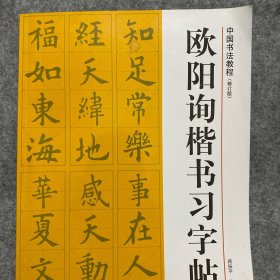 中国书法教程(修订版)
欧阳询楷书习字帖
知足常樂
事在人
經天緯地
感天動
福如東海
華夏文